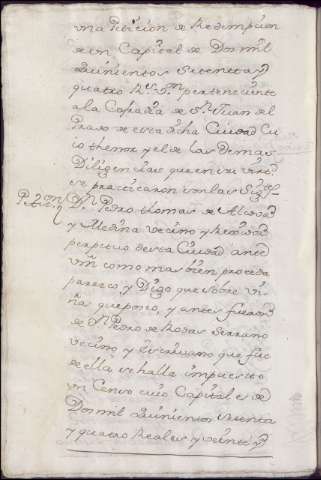 una Peticion de Redempcion
de un Capital de Dos mil
Quinientos Setenta y
quatro R.s V.n perteneciente
a la Cofradia de S.n Juan del
Prado de esta dha Ciudad Cu
io thenor y el de las Demas
Diligencias que en su virtd
se practicaron son las Sig.tes
Pet.on D.n Pedro thomas de
y Medina vecino y Rexidor
perpetuo de esta Ciudad ante
Vm como mas bien proceda
parezco y Digo que sobre vi
ña que poseo, y antes fue
de D.n Pedro de Rosas Serrano
vecino y Escrivano que fue
de ella se halla impuesto
un Censo cuio Capital es de
Dos mil Quinientos Setenta
y quatro Reales y veinte y